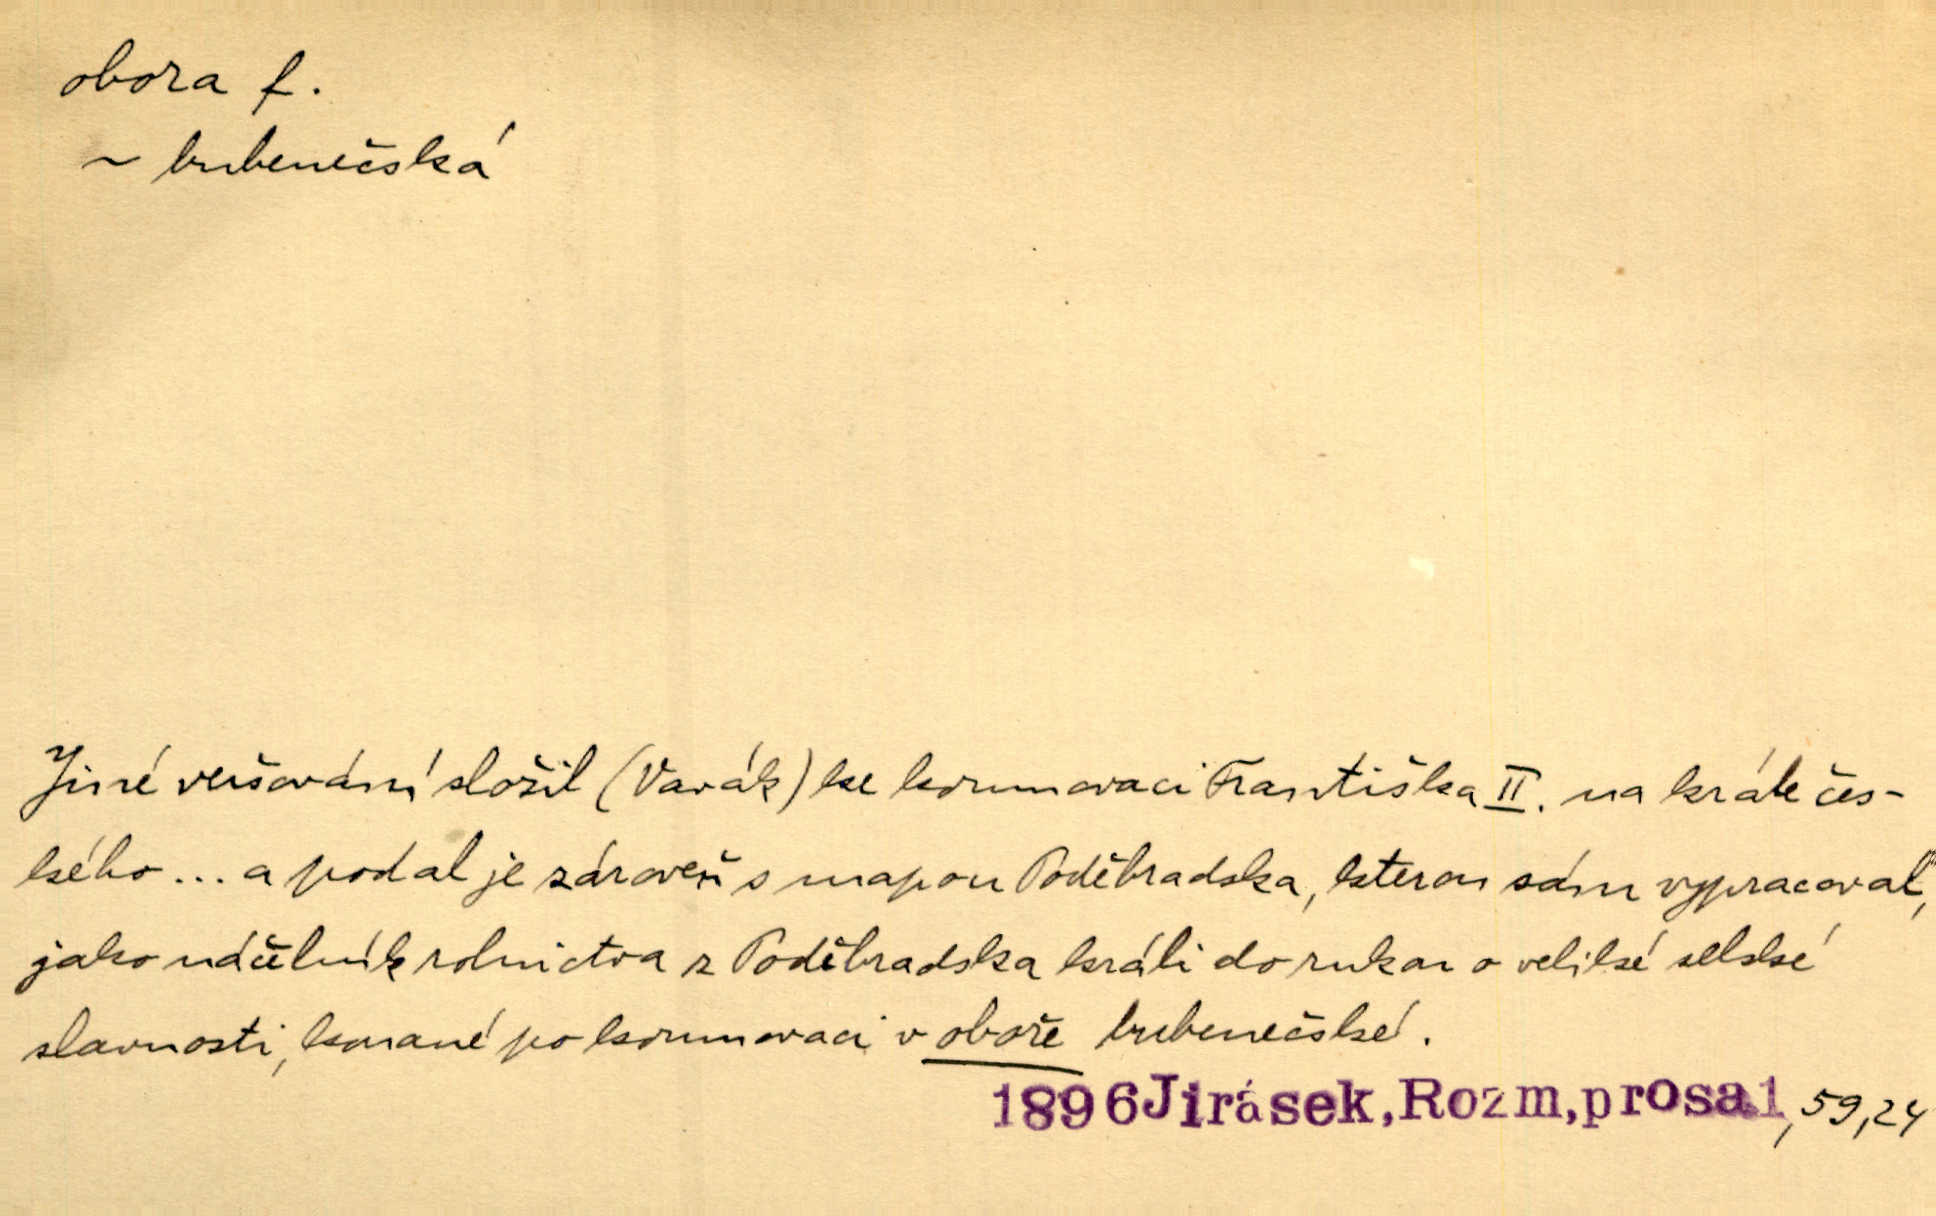 obora f.
~ bubenečská
Jiné veršování složil (Vavák) ke korunovaci Františka II. na krále čes-
kého... a podal je zároveň s mapou Poděbradska, kterou sám vypracoval,
jako náčelník rolnictva z Poděbradska králi do rukou o veliké selské
slavnosti, konané po korunovaci v oboře bubenečské.
1896 Jirásek, Rozm, prosa 1, 59, 24